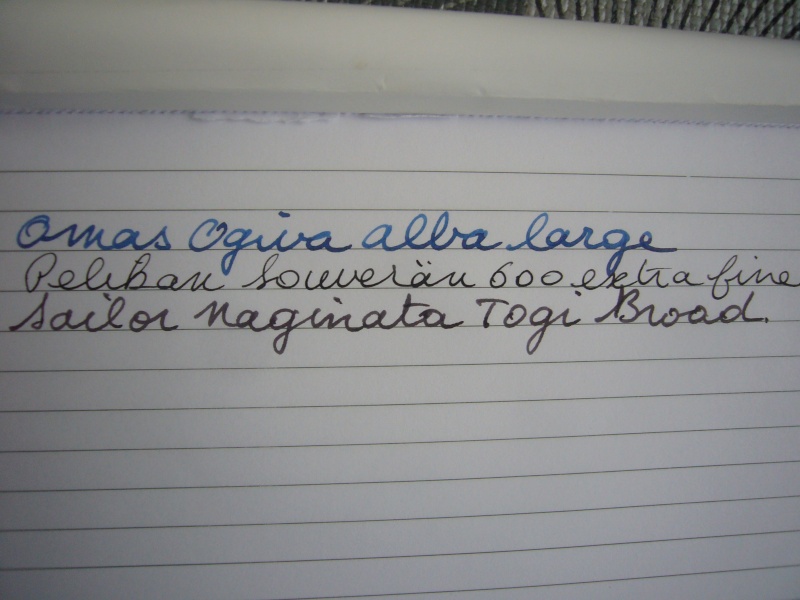 Omas Ogiva alba large
Pelikan Souverän 600 extra fine
Sailor Naginata Togi Broad.